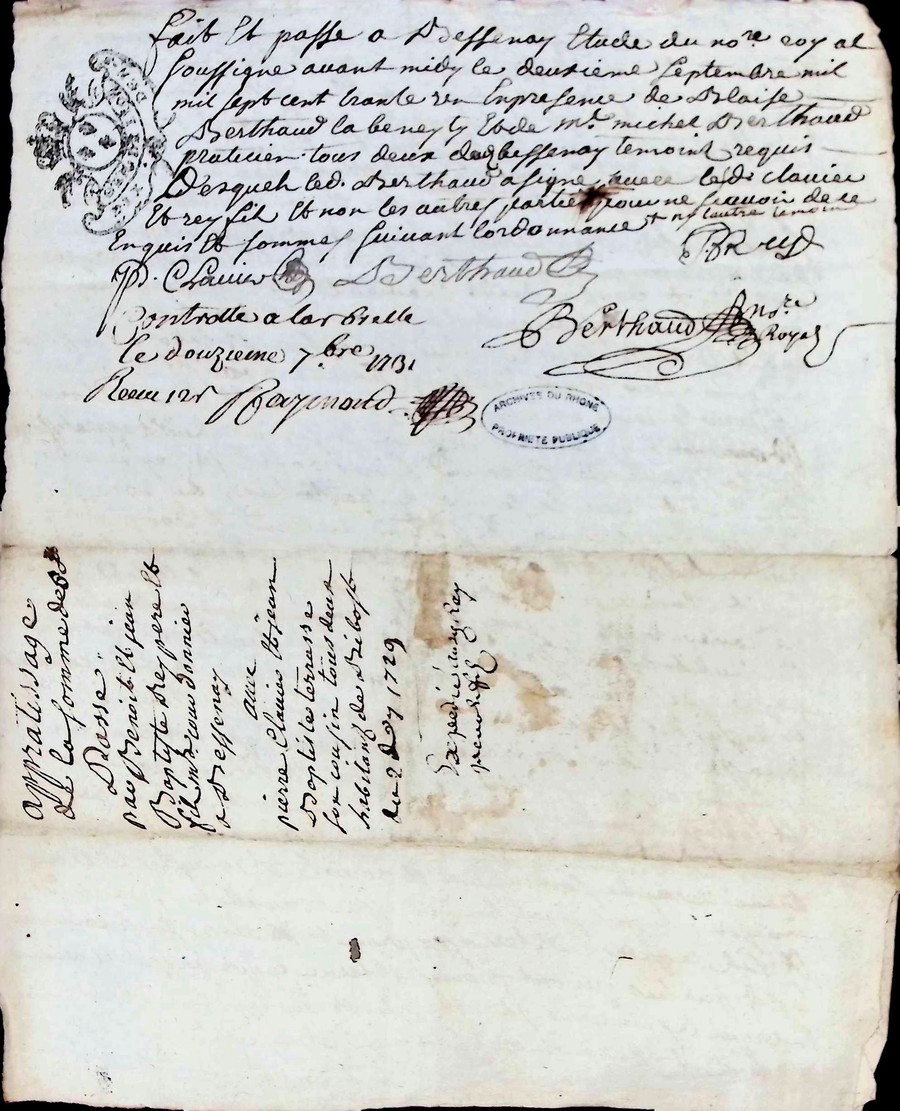 fait Et passe a Bessenay Etude du nore royal
soussigne avant midy le deuxieme septembre mil
mil sept cent trante un En presence de Blaise
Berthaud la beney ty Et de mr michel Berthaud
praticien tous deux dud bessenay temoint requis
Desquels led. Berthaud a signe avecc led. clavier
Et rey fil Et non les autres partie pour ne scavoir de ce
Enquis Et sommes suivant lordonnance + ny lautre temoin
P. Clavier
Berthaud
BRey
Berthaud nore
Royal
Controlle a larbrelle
le douzieme 7bre 1731
Receu 12s Raymond
ARCHIVES DU RHONE
PROPRIETE PUBLIQUE
de la somme de
Passe
par Benoit Et jean
Baptiste Rey pere Et
fil
a Bessenay
avec
pierre Clavier Et jean
Baptiste terrasse
son cousin tous deux
habitans de Ribost
du 2 1729
Expedié